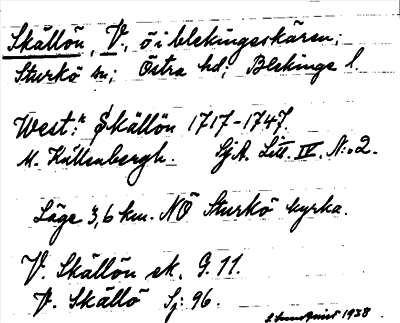 Skällön, V., ö i blekingeskären;
Sturkö sn; Östra hd; Blekinge l.
West:ⁿ Skällön 1717-1747.
M. Källenbergh. SjA. Litt. IV. N:o 2.
Läge 3,6 km. NÖ Sturkö kyrka.
V. Skällön ek. 9.11.
V. Skällö Sj: 96.
1938